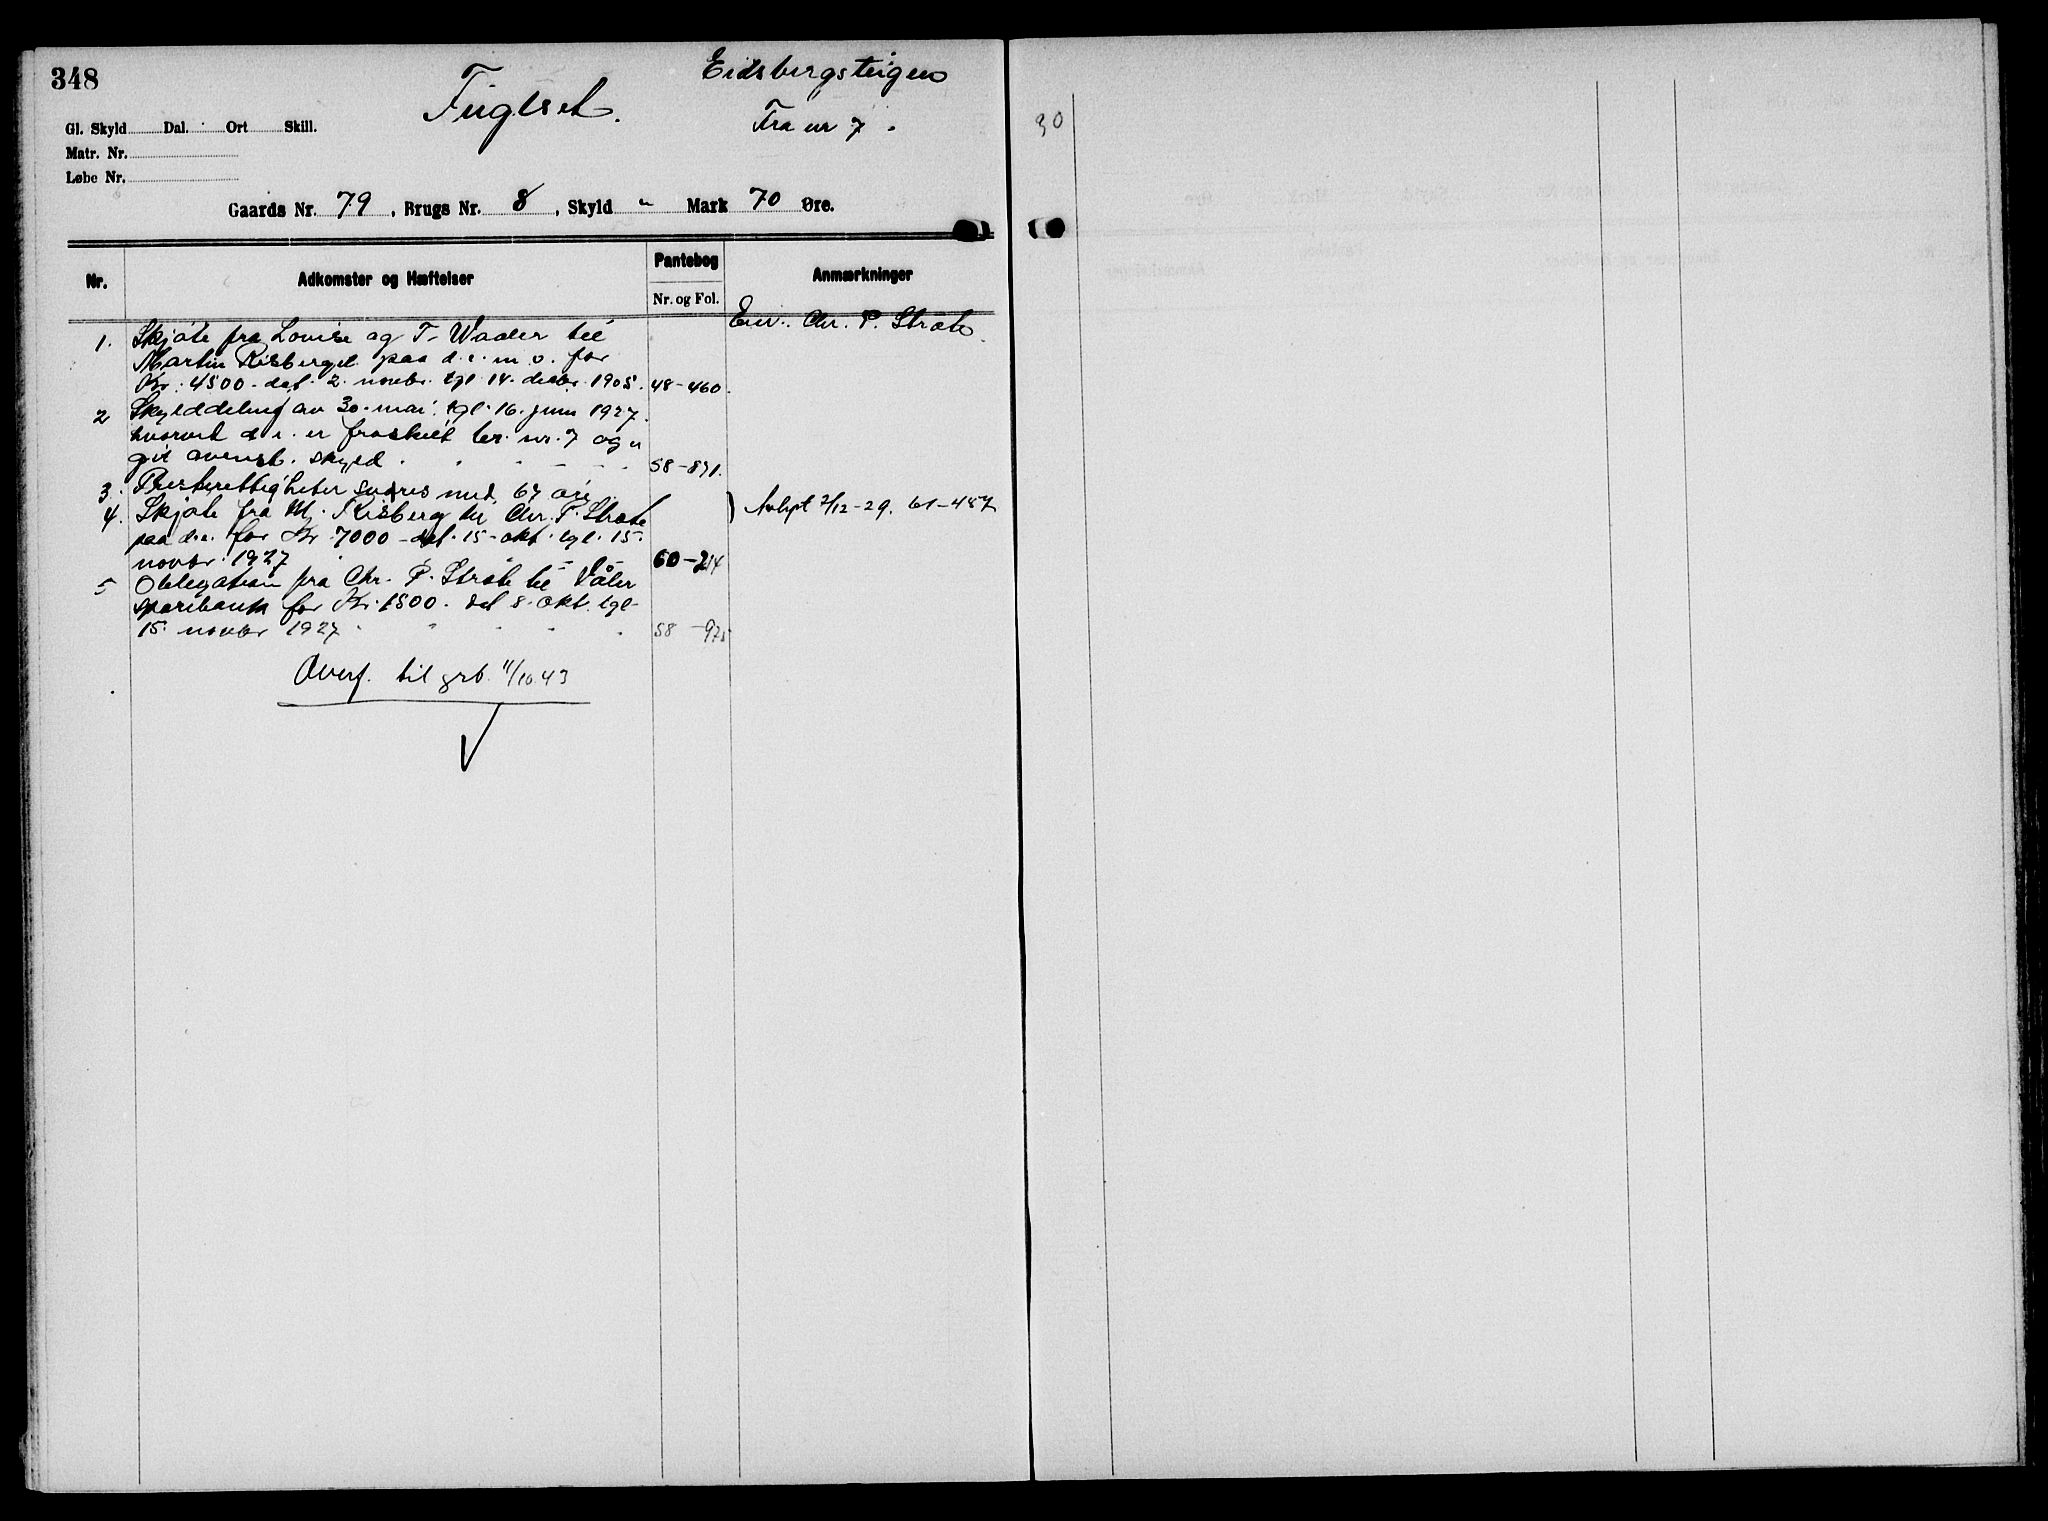 348
Fuglset.
Eidsbergsteigen
Fra nr 7.
Gl. Skyld Dal. Ort Skill.
Matr. Nr.
Løbe Nr.
Gaards Nr. 79, Brugs Nr. 8, Skyld " Mark 70 Øre.
Nr. Adkomster og Hæftelser Pantebog Anmærkninger
Nr. og Fol.
Eier: Chr. P. Strate
1. Skjøte fra Lovise og T. Waaler til
Martin Risberget paa d. e. m. o. for
Kr. 4500. dat. 2. novebr. tgl. 14. decbr. 1905. 48-460.
2 Skylddeling av 30. mai. tgl. 16. juni 1927.
hvorved d. e. er fraskilt br. nr. 7 og
git avenst. skyld 58-891.
3. Presterettigheter svares med 67 øre
4. Skjøte fra M. Risberg til Chr. P. Strate
paa d.e. for Kr. 7000 - dat. 15. okt. tgl. 15.
novbr. 1927 60-214
5 Obligation fra Chr. P. Strate til Våler
sparebank for Kr. 1500. dat 8. okt. tgl.
15. novbr 1927 58-975
Avlyst 2/12-29. 61-457
Overf. til grb. 11/10 43
30